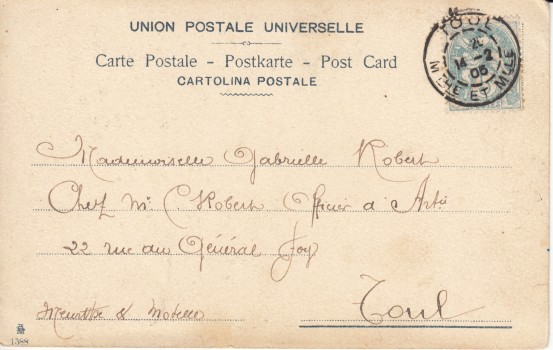 UNION POSTALE UNIVERSELLE
Carte Postale - Postkarte - Post Card
CARTOLINA POSTALE
TOUL
14 -2
05
MTHE ET MLLE
Mademoiselle Gabrielle Robert
Chez Mr. C Robert Officier d'Artie
22 rue du Général Foy
Meurthe & Moselle
Toul
1388